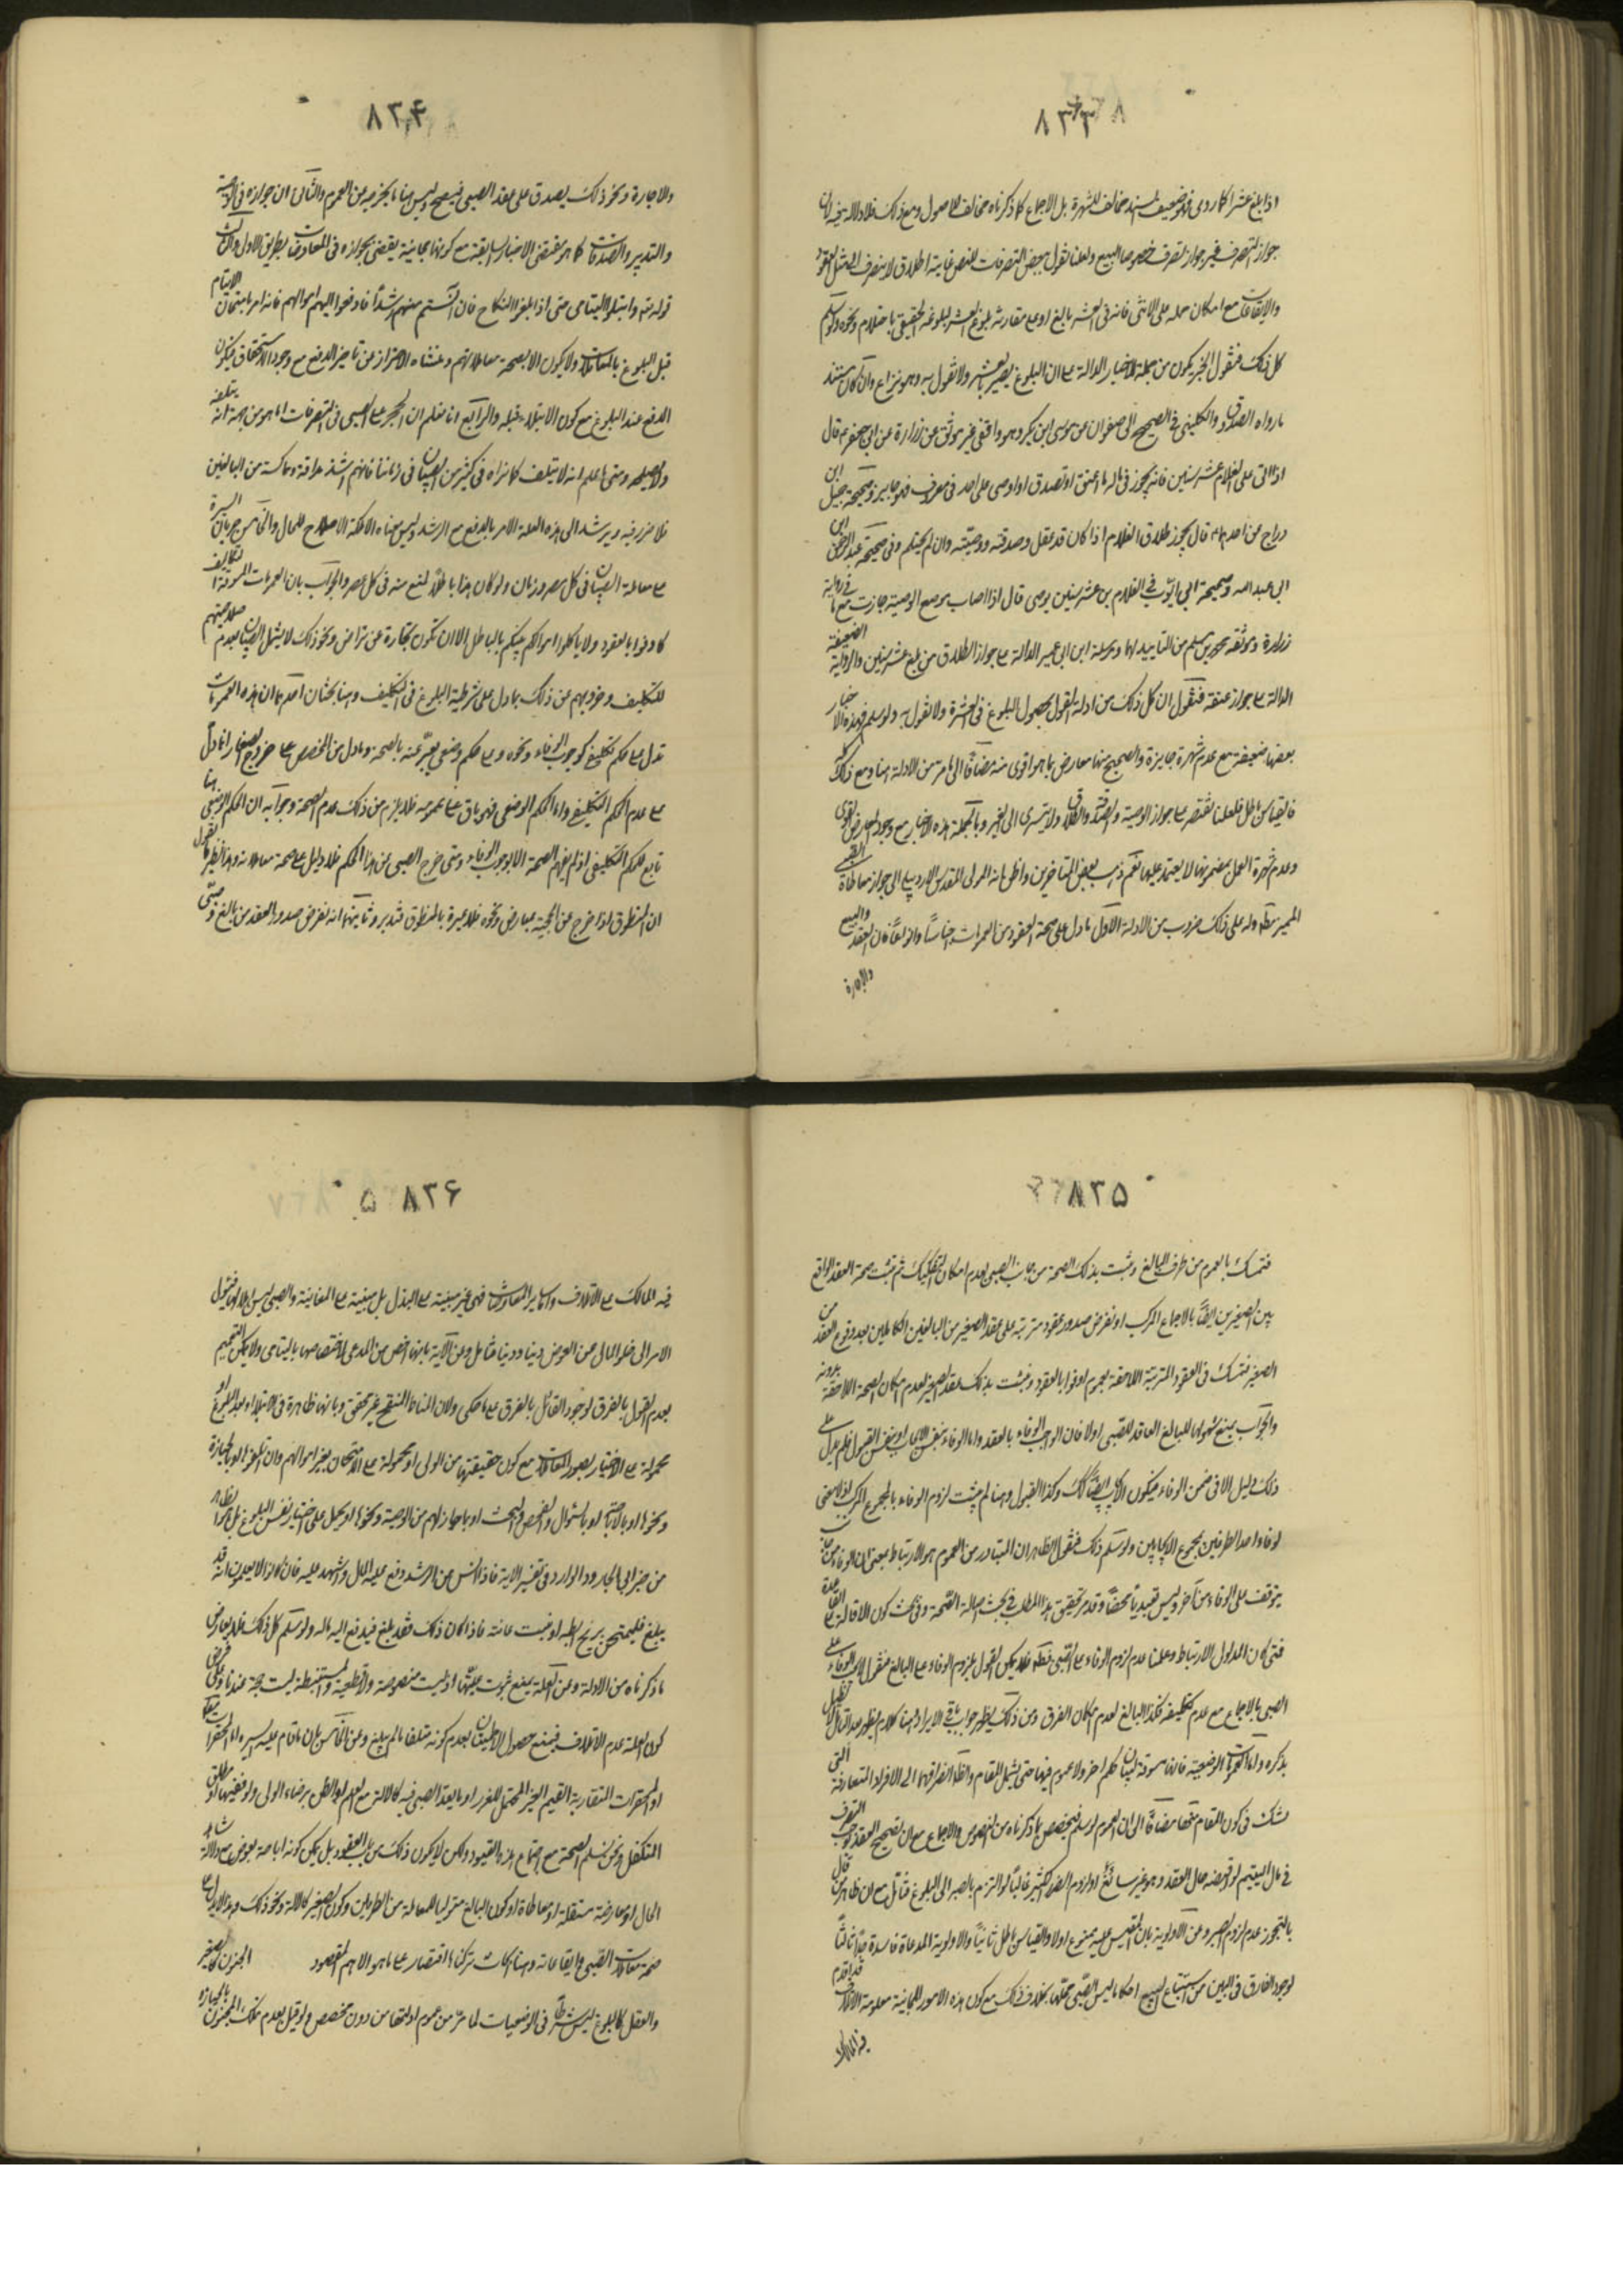 ٨٣٣
اذا بلغ عشرا كما روى فهو ضعيف السند مخالف للشهرة بل الاجماع كما ذكرناه مخالف للاصول ومع ذلك فلا دلالة فيه لان
جواز التصرف غير جواز التصرف خصوصا البيع ولعلنا نقول ببعض التصرفات للنص غايته اطلاق لا ينصرف الى مثل العقود
والايقاعات مع امكان حمله على الانثى فانه في العشر بالغ او على مقارنة بلوغ العشر للبلوغ الحقيقي باحتلام ونحوه ولو سلم
كل ذلك فنقول الخبر يكون من جملة الاخبار الدالة على ان البلوغ يصير بالعشر ولا نقول به وهو نزاع وان كان مستند
ما رواه الصدوق والكليني في الصحيح الى صفوان عن موسى بن بكر وهو واقفي غير موثق عن زرارة عن ابي جعفر ع قال
اذا اتى على الغلام عشر سنين فانه يجوز في ماله ما اعتق او تصدق او اوصى على حد في معروف فهو جايز وصحيحة جميل ابن
دراج عن احدهما ع قال يجوز طلاق الغلام اذا كان قد عقل وصدقته ووصيته وان لم يحتلم وفي صحيحة عبد الرحمن ابن
ابي عبد الله وصحيحة ابي ايوب في الغلام بن عشر سنين يوصى قال اذا اصاب موضع الوصية جازت مع ما في رواية
زرارة وموثقة محمد بن مسلم من التأييد لها ومرسلة ابن ابي عمير الدالة على جواز الطلاق من بلغ عشر سنين والرواية الضعيفة
الدالة على جواز عتقه فنقول ان كل ذلك من ادلة القول بحصول البلوغ في العشرة ولا نقول به ولو سلم فهذه الاخبار
بعضها ضعيفة مع عدم شهرة جابرة والصحيح منها معارض بما هو اقوى منه مضافا الى ما مر من الادلة هنا ومع ذلك كله
فالقياس باطل فلعلنا نقتصر على جواز الوصية والصدقة والطلاق ولا يتسرى الى الغير وبالجملة هذه الاخبار مع وجود المعارض القوى
وعدم شهرة العمل بمضمونها لا يعتمد عليها نعم ذهب بعض المتاخرين واظن انه المولى المقدس الاردبيلي الى جواز معاملة الصبى
المميز وله على ذلك ضروب من الادلة الاول ما دل على صحة العقود من العمومات اجناسا وانواعا فان العقد والبيع
والاجارة
٨٣٤
والاجارة ونحو ذلك يصدق على عقد الصبى فيصح وليس هنا ما يخرجه من العموم والثاني ان جوازه في الوصية
والتدبير والصدقات كما هو مقتضى الاخبار السابقة مع كونها مجانية يقضى بجوازه في المعاوضات بطريق الاولى والثالث
قوله تع وابتلوا اليتامى حتى اذا بلغوا النكاح فان آنستم منهم رشدا فادفعوا اليهم اموالهم فانه امر بامتحان الايتام
قبل البلوغ بالمعاملات ولا يكون الا بصحة معاملاتهم ومنشأه الاحتراز عن تاخير الدفع مع وجود الاستحقاق فيكون
الدفع عند البلوغ مع كون الابتلاء قبله والرابع انا نعلم ان الحجر على الصبى في التصرفات انما هو من جهة انه يتلفه
ولا يصلحه ومتى ما علم انه لا يتلف كما نراه في كثير من الصبيان في زماننا فانهم اشد مداقة ومماكسة من البالغين
فلا ضرر فيه ويرشد الى هذه العلة الامر بالدفع مع الرشد وليس معناه الا ملكة الاصلاح للمال والخامس جريان السيرة
على معاملة الصبيان في كل مصر وزمان ولو كان هذا باطلا لمنع منه في كل عصر والجواب بان العمومات المسوقة لتكاليف
كاوفوا بالعقود ولا تاكلوا اموالكم بينكم بالباطل الا ان تكون تجارة عن تراض ونحو ذلك لا يشمل الصبيان لعدم صلاحيتهم
للتكليف وخروجهم عن ذلك بما دل على شرطية البلوغ في التكليف وهنا بحثان احدهما ان هذه العمومات
تدل على حكم تكليفي كوجوب الوفاء ونحوه وعلى حكم وضعي يعبر عنه بالصحة وما دل من المخصص على خروج الصغار انما دل
على عدم الحكم التكليفي واما الحكم الوضعي فهو باق على عمومه فلا يلزم من ذلك عدم الصحة وجوابه ان الحكم الوضعي هنا
تابع للحكم التكليفي اذ لم يفهم الصحة الا بوجوب الوفاء ومتى خرج الصبى عن هذا الحكم فلا دليل على صحة معاملاته وهذا نظير ما نقول
ان المنطوق اذا خرج عن الحجية بمعارض ونحوه فلا عبرة بالمنطوق فتدبر وثانيهما انه نفرض صدور العقد من بالغ وصبى
٨٣٥
فنتمسك بالعموم من طرف البالغ وثبت بذلك الصحة من جانب الصبى لعدم امكان التفكيك ثم تثبت صحة العقد الواقع
بين الصغيرين ايضا بالاجماع المركب او نفرض صدور عقود مترتبة على عقد الصغير من البالغين الكاملين بعد وقوع العقد من
الصغير فنتمسك في العقود المترتبة اللاحقة بعموم اوفوا بالعقود ونثبت بذلك عقد الصغير لعدم امكان الصحة اللاحقة بدونه
والجواب بمنع شمولها للبالغ العاقد للصبى اولا فان الواجب الوفاء بالعقد واما الوفاء بنفس الايجاب او بنفس القبول فلم يدل على
ذلك دليل الا في ضمن الوفاء فيكون الايجاب ايضا كك وكذا القبول وهنا لم يثبت لزوم الوفاء بالمجموع المركب اذ لا معنى
لوفاء احد الطرفين بمجموع الايجابين ولو سلم ذلك فنقول الظاهر ان المتبادر من العموم هو الارتباط بمعنى ان الوفاء من جانب
يتوقف على الوفاء من آخر وليس تعبديا محضا وقد مر تحقيق هذا المطلب في بحث اصالة الصحة وفي بحث كون الاقالة على القاعدة
فمتى كان المدلول الارتباط وعلمنا عدم لزوم الوفاء على الصبى قطعا فلا يمكن القول بلزوم الوفاء على البالغ فنقول لا يجب الوفاء على
الصبى بالاجماع مع عدم تكليفه فكذا البالغ لعدم امكان الفرق ومن ذلك يظهر جواب باقي الايراد وهنا كلام يظهر بعد التامل لا نطيل
بذكره واما العمومات الوضعية فانها مسوقة لبيان حكم اخر ولا عموم فيها حتى يشمل المقام والظاهر انصرافها الى الافراد المتعارفة التى
نشك في كون المقام منها مضافا الى ان العموم لو سلم فيخصص بما ذكرناه من النصوص والاجماع مع ان تصحيح العقد يوجب التصرف
في مال اليتيم لو قبضه حال العقد وهو غير سائغ او لزوم الضرر الكثير غالبا لو التزم بالصبر الى البلوغ فتأمل مع ان ظاهر من قال
بالتجويز عدم لزوم الصبر وعن الاولوية بان المقيس عليه ممنوع اولا والقياس باطل ثانيا والاولوية المدعاة فاسدة جدا ثالثا
لوجود الفارق في البين من استتباع البيع احكاما ليس الصبى محلها بخلاف ذلك مع كون هذه الامور المجانية معلومة الاتلاف قد اقدم
فيه المالك
٨٣۶
فيه المالك على الاتلاف واما سائر المعاوضات فهي غير مبنية على البذل بل مبنية على المغابنة والصبى ليس اهلا لها فيؤول
الامر الى خلو المال عن العوض دينا ودنيا فتامل وعن الآية بانها اخص من المدعى لاختصاصها باليتامى ولا يمكن التعميم
بعدم القول بالفرق لوجود القائل بالفرق على ما حكى ولان المناط المنقح غير محقق وبانها ظاهرة في الابتلاء بعد البلوغ او
محمولة على الاختبار بصور المعاملات مع كون حقيقتها من الولى او محمولة على الامتحان بغير اموالهم وان تلغوا او بالحيازة
ونحوها او بالاحتطاب او بالسؤال والفحص والبحث او بما جاز لهم من الوصية ونحوها او يحمل على اختبار نفس البلوغ بل هو الظاهر
من خبر ابي الجارود الوارد في تفسير الاية فاذا انس من الرشد دفع عليه المال واشهد عليه فان كانوا لا يعلمون انه قد
بلغ فليمتحن بريح ابطه او نبت عانته فاذا كان ذلك فقد بلغ فيدفع اليه ماله ولو سلم كل ذلك فلا يعارض
ما ذكرناه من الادلة وعن العلة بمنع ثبوت عليتها اذ ليست منصوصة ولا قطعية والمستنبطة ليست حجة عندنا وعلى فرض
كون العلة عدم الاتلاف فيمنع حصول الاطمينان بعدم كونه متلفا ما لم يبلغ وعن الخامس بان ما قام عليه السيرة اما المحقرات
او المحقرات التقاربة القيم الغير المحتمل للغرر او ما يعد الصبى فيه كالآلة مع العلم او الظن برضاء الولى ولو فضوليا او مطلق
المتكفل ونحن نسلم الصحة مع اجتماع هذه القيود ولكن لا يكون ذلك من باب العقود بل يمكن كونه اباحة بعوض مع دلالة شاهد
الحال او معاوضة مستقلة او معاطاة او كون البالغ متوليا للمعاملة من الطرفين وكون الصغير كالالة ونحو ذلك وهذا لا يدل على
صحة معاملات الصبى وايقاعاته وهنا نكات تركناها اقتصارا على ما هو الاهم المقصود الجنون كالصغير
والعقل كالبلوغ ليس شرطا في الوضعيات لما مر من عموم ادلتها من دون مخصص ولو قيل بعدم تملك المجنون بالحيازة